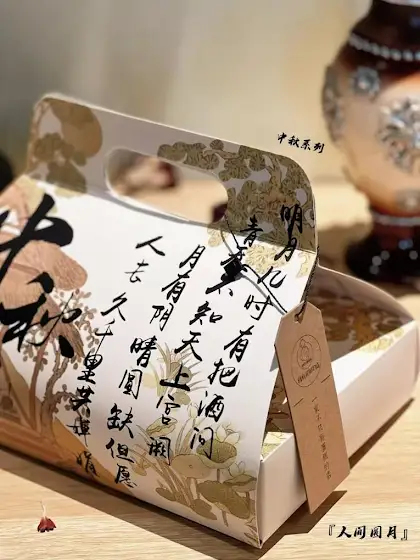 中秋系列
中秋
明月几时有把酒问
青天不知天上宫阙
月有阴晴圆缺但愿
人长久千里共婵娟
『人间圆月』